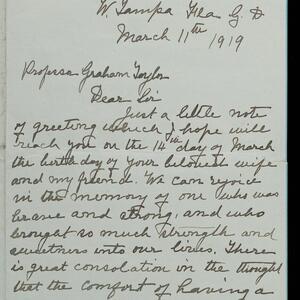 W. Tampa Fla G. D
March 11th 1919
Professor Graham Taylor
Dear Sir
Just a little note
of greeting which I hope will
reach you on the 14th day of March
the birth day of your beloved wife
and my friend. We can rejoice
in the memory of one who was
brave and strong, and who
brought so much strength and
sweetness into our lives. There
is great consolation in the thought
that the comfort of having a